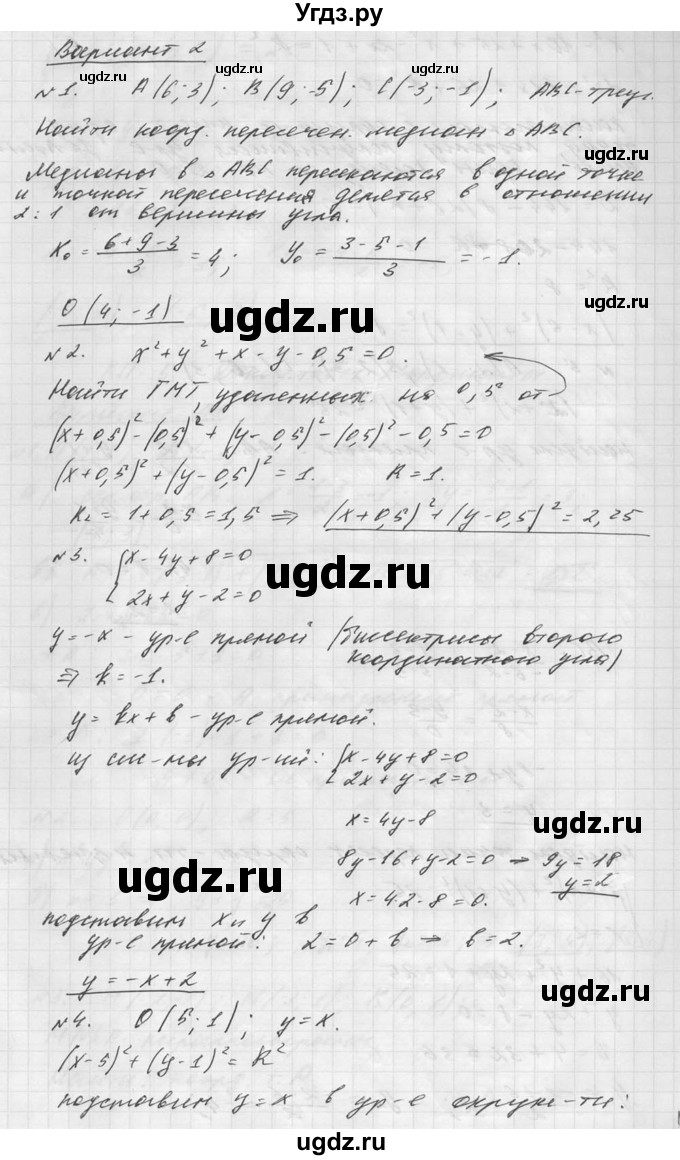 Угдз.ру
Вариант 2
№1. A(6; 3); B(9; -5); C(-3; -1); ABC-треуг.
Найти коорд. пересечен. медиан △ABC.
Медианы в △ABC пересекаются в одной точке
и точкой пересечения делятся в отношении
2:1 от вершины угла.
x₀ = (6+9-3)/3 = 4; y₀ = (3-5-1)/3 = -1.
O(4; -1)
№2. x²+y²+x-y-0,5=0.
Найти ГМТ, удаленных на 0,5 от
(x+0,5)²-(0,5)²+(y-0,5)²-(0,5)²-0,5=0
(x+0,5)²+(y-0,5)²=1. R=1.
R₂=1+0,5=1,5 ⇒ (x+0,5)²+(y-0,5)²=2,25
№3. {x-4y+8=0
2x+y-2=0
y=-x - ур-е прямой (биссектрисы второго
координатного угла)
⇒ k=-1.
y=kx+b - ур-е прямой.
из сис-мы ур-ий: {x-4y+8=0
2x+y-2=0
x=4y-8
8y-16+y-2=0 → 9y=18
y=2
x=4·2-8=0.
подставим x и y в
ур-е прямой: 2=0+b → b=2.
y=-x+2
№4. O(5; 1); y=x.
(x-5)²+(y-1)²=R²
подставим y=x в ур-е окруж-ти:
ugdz.ru
ugdz.ru
ugdz.ru
ugdz.ru
ugdz.ru
ugdz.ru
ugdz.ru
ugdz.ru
ugdz.ru
ugdz.ru
ugdz.ru
ugdz.ru
ugdz.ru
ugdz.ru